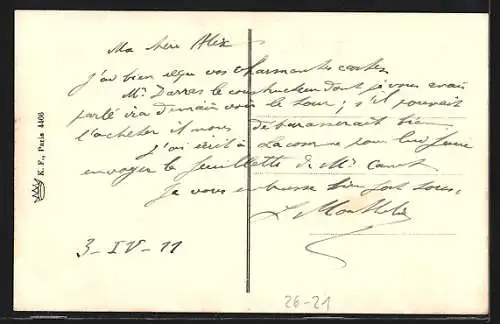 Ma chère Alix
J'ai bien reçu vos charmantes cartes
Mr Darras le constructeur dont je vous avais
parlé ira demain voir le tour ; s'il pouvait
l'acheter il nous débarasserait bien
J'ai écrit à Lacomme pour lui faire
envoyer la feuillette de Mr
Je vous embrasse bien fort tous.
L
3-IV-11
K. F., Paris 4466
26-21